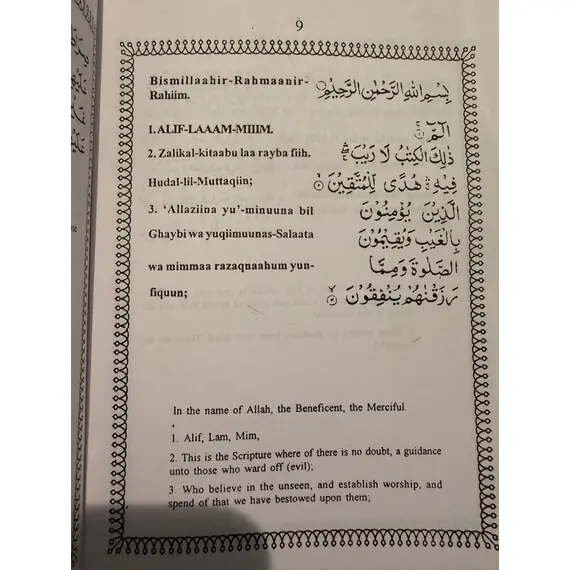 9
Bismillaahir-Rahmaanir-
Rahiim.
1.ALIF-LAAAM-MIIIM.
2. Zalikal-kitaabu laa rayba fiih.
Hudal-lil-Muttaqiin;
3. ‘Allaziina yu’-minuuna bil
Ghaybi wa yuqiimuunas-Salaata
wa mimmaa razaqnaahum yun-
fiquun;
بِسْمِ اللهِ الرَّحْمٰنِ الرَّحِيْمِ
الٓمّٓ ۚ ١
ذٰلِكَ الْكِتٰبُ لَا رَيْبَ ۛۖ
فِيْهِ ۛ هُدًى لِّلْمُتَّقِيْنَ ۙ ٢
الَّذِيْنَ يُؤْمِنُوْنَ
بِالْغَيْبِ وَيُقِيْمُوْنَ
الصَّلٰوةَ وَمِمَّا
رَزَقْنٰهُمْ يُنْفِقُوْنَ ۙ ٣
In the name of Allah, the Beneficent, the Merciful.
1. Alif, Lam, Mim,
2. This is the Scripture where of there is no doubt, a guidance
unto those who ward off (evil);
3. Who believe in the unseen, and establish worship, and
spend of that we have bestowed upon them;